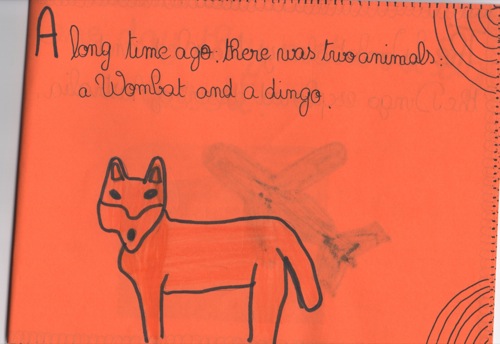 A long time ago, there was two animals:
a Wombat and a dingo.